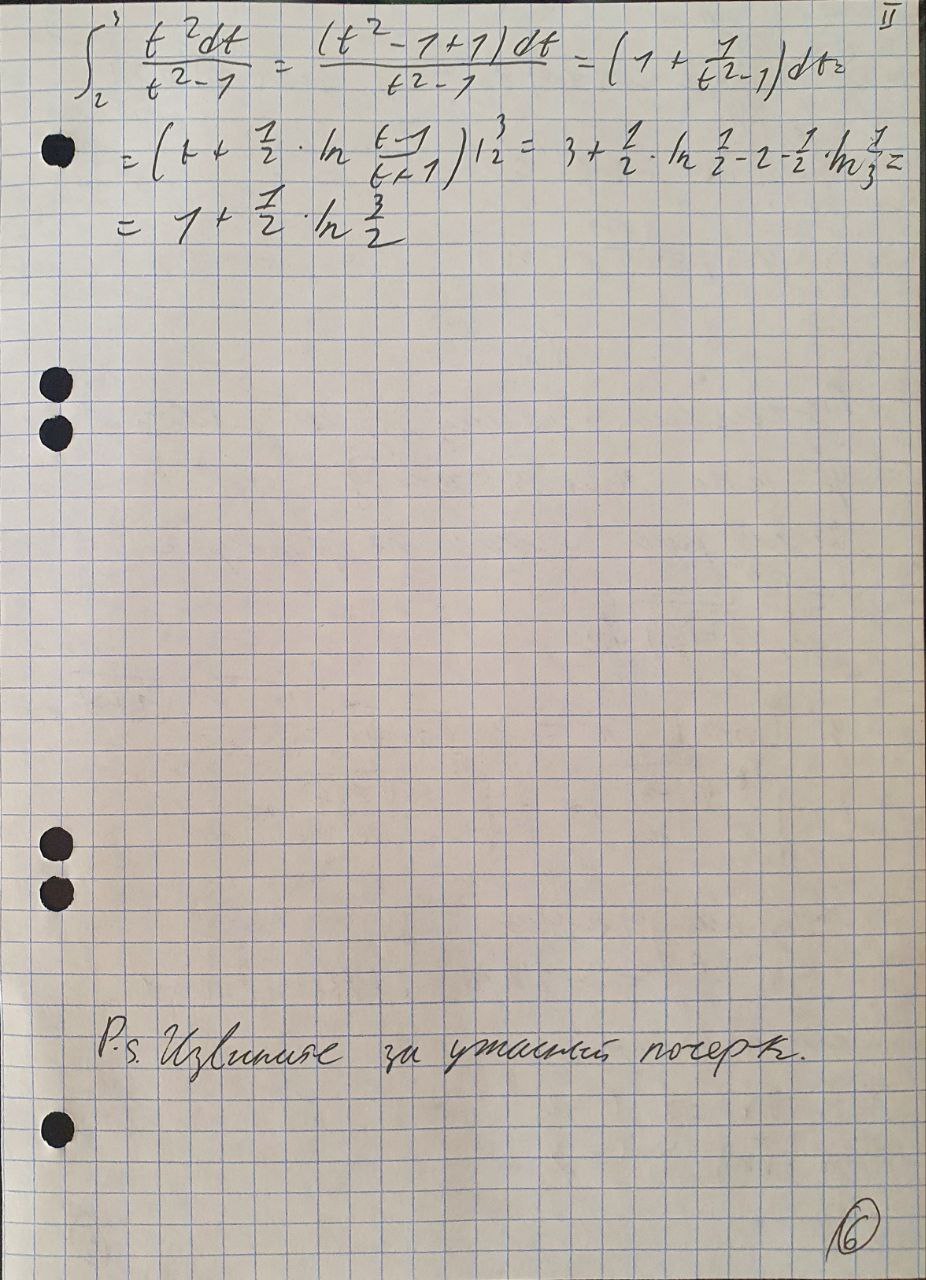 II
∫₂³ t²dt/(t²-1) = (t²-1+1)dt/(t²-1) = (1 + 1/(t²-1))dt =
= (t + 1/2 · ln (t-1)/(t+1))|₂³ = 3 + 1/2 · ln 1/2 - 2 - 1/2 · ln 1/3 =
= 1 + 1/2 · ln 3/2
P.s. Извините за ужасный почерк.
6